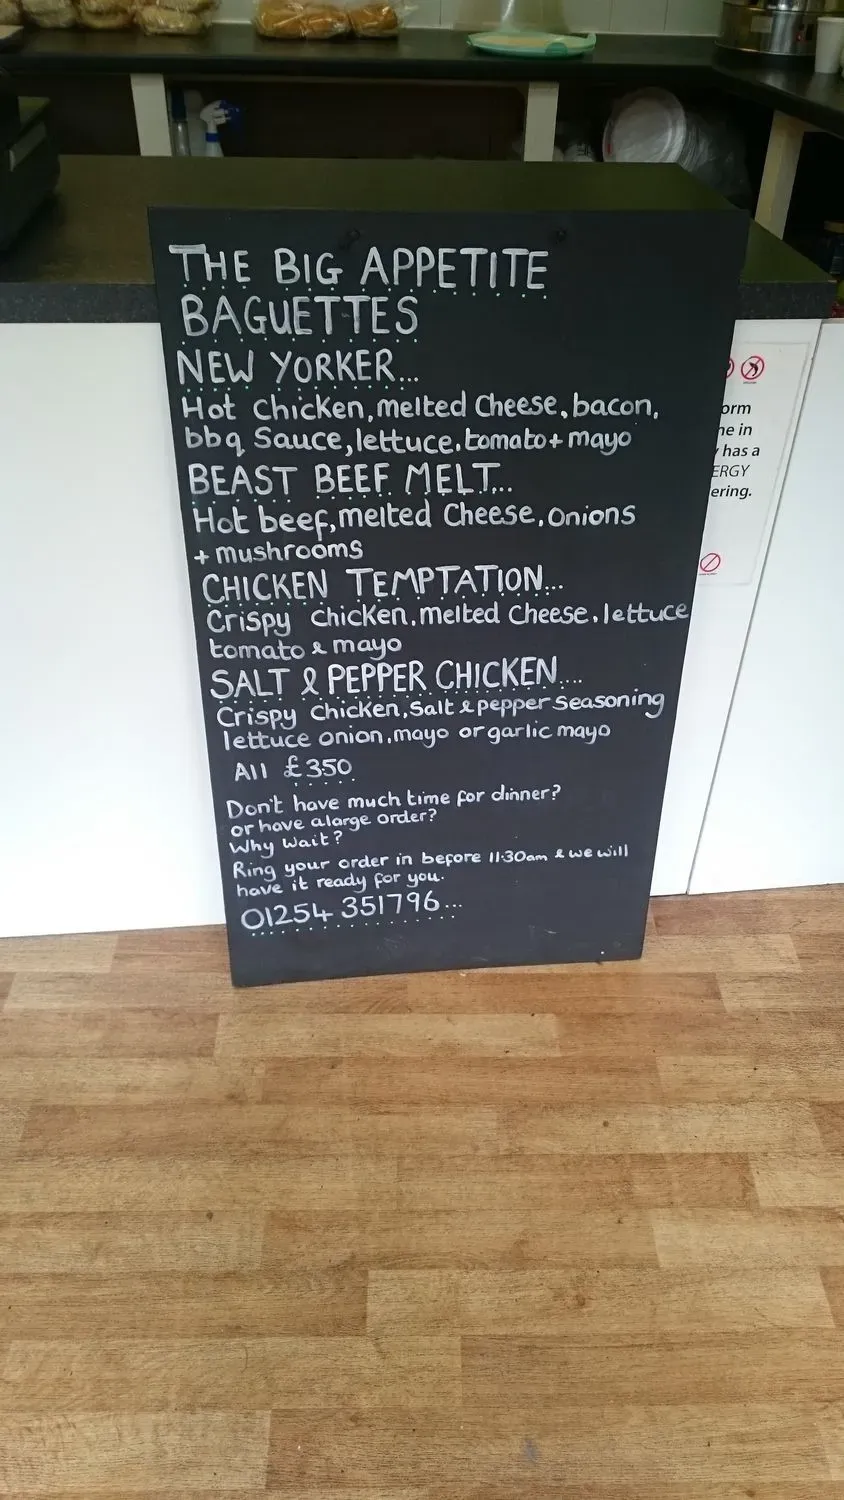 THE BIG APPETITE
BAGUETTES
NEW YORKER...
Hot chicken, melted cheese, bacon,
bbq sauce, lettuce, tomato + mayo
BEAST BEEF MELT...
Hot beef, melted cheese, onions
+ mushrooms
CHICKEN TEMPTATION...
Crispy chicken, melted cheese, lettuce
tomato & mayo
SALT & PEPPER CHICKEN....
Crispy chicken, salt & pepper seasoning
lettuce onion, mayo or garlic mayo
All £3.50
Don't have much time for dinner?
or have a large order?
Why wait?
Ring your order in before 11.30am & we will
have it ready for you.
01254 351796...
orm
ne in
has a
ERGY
ering.